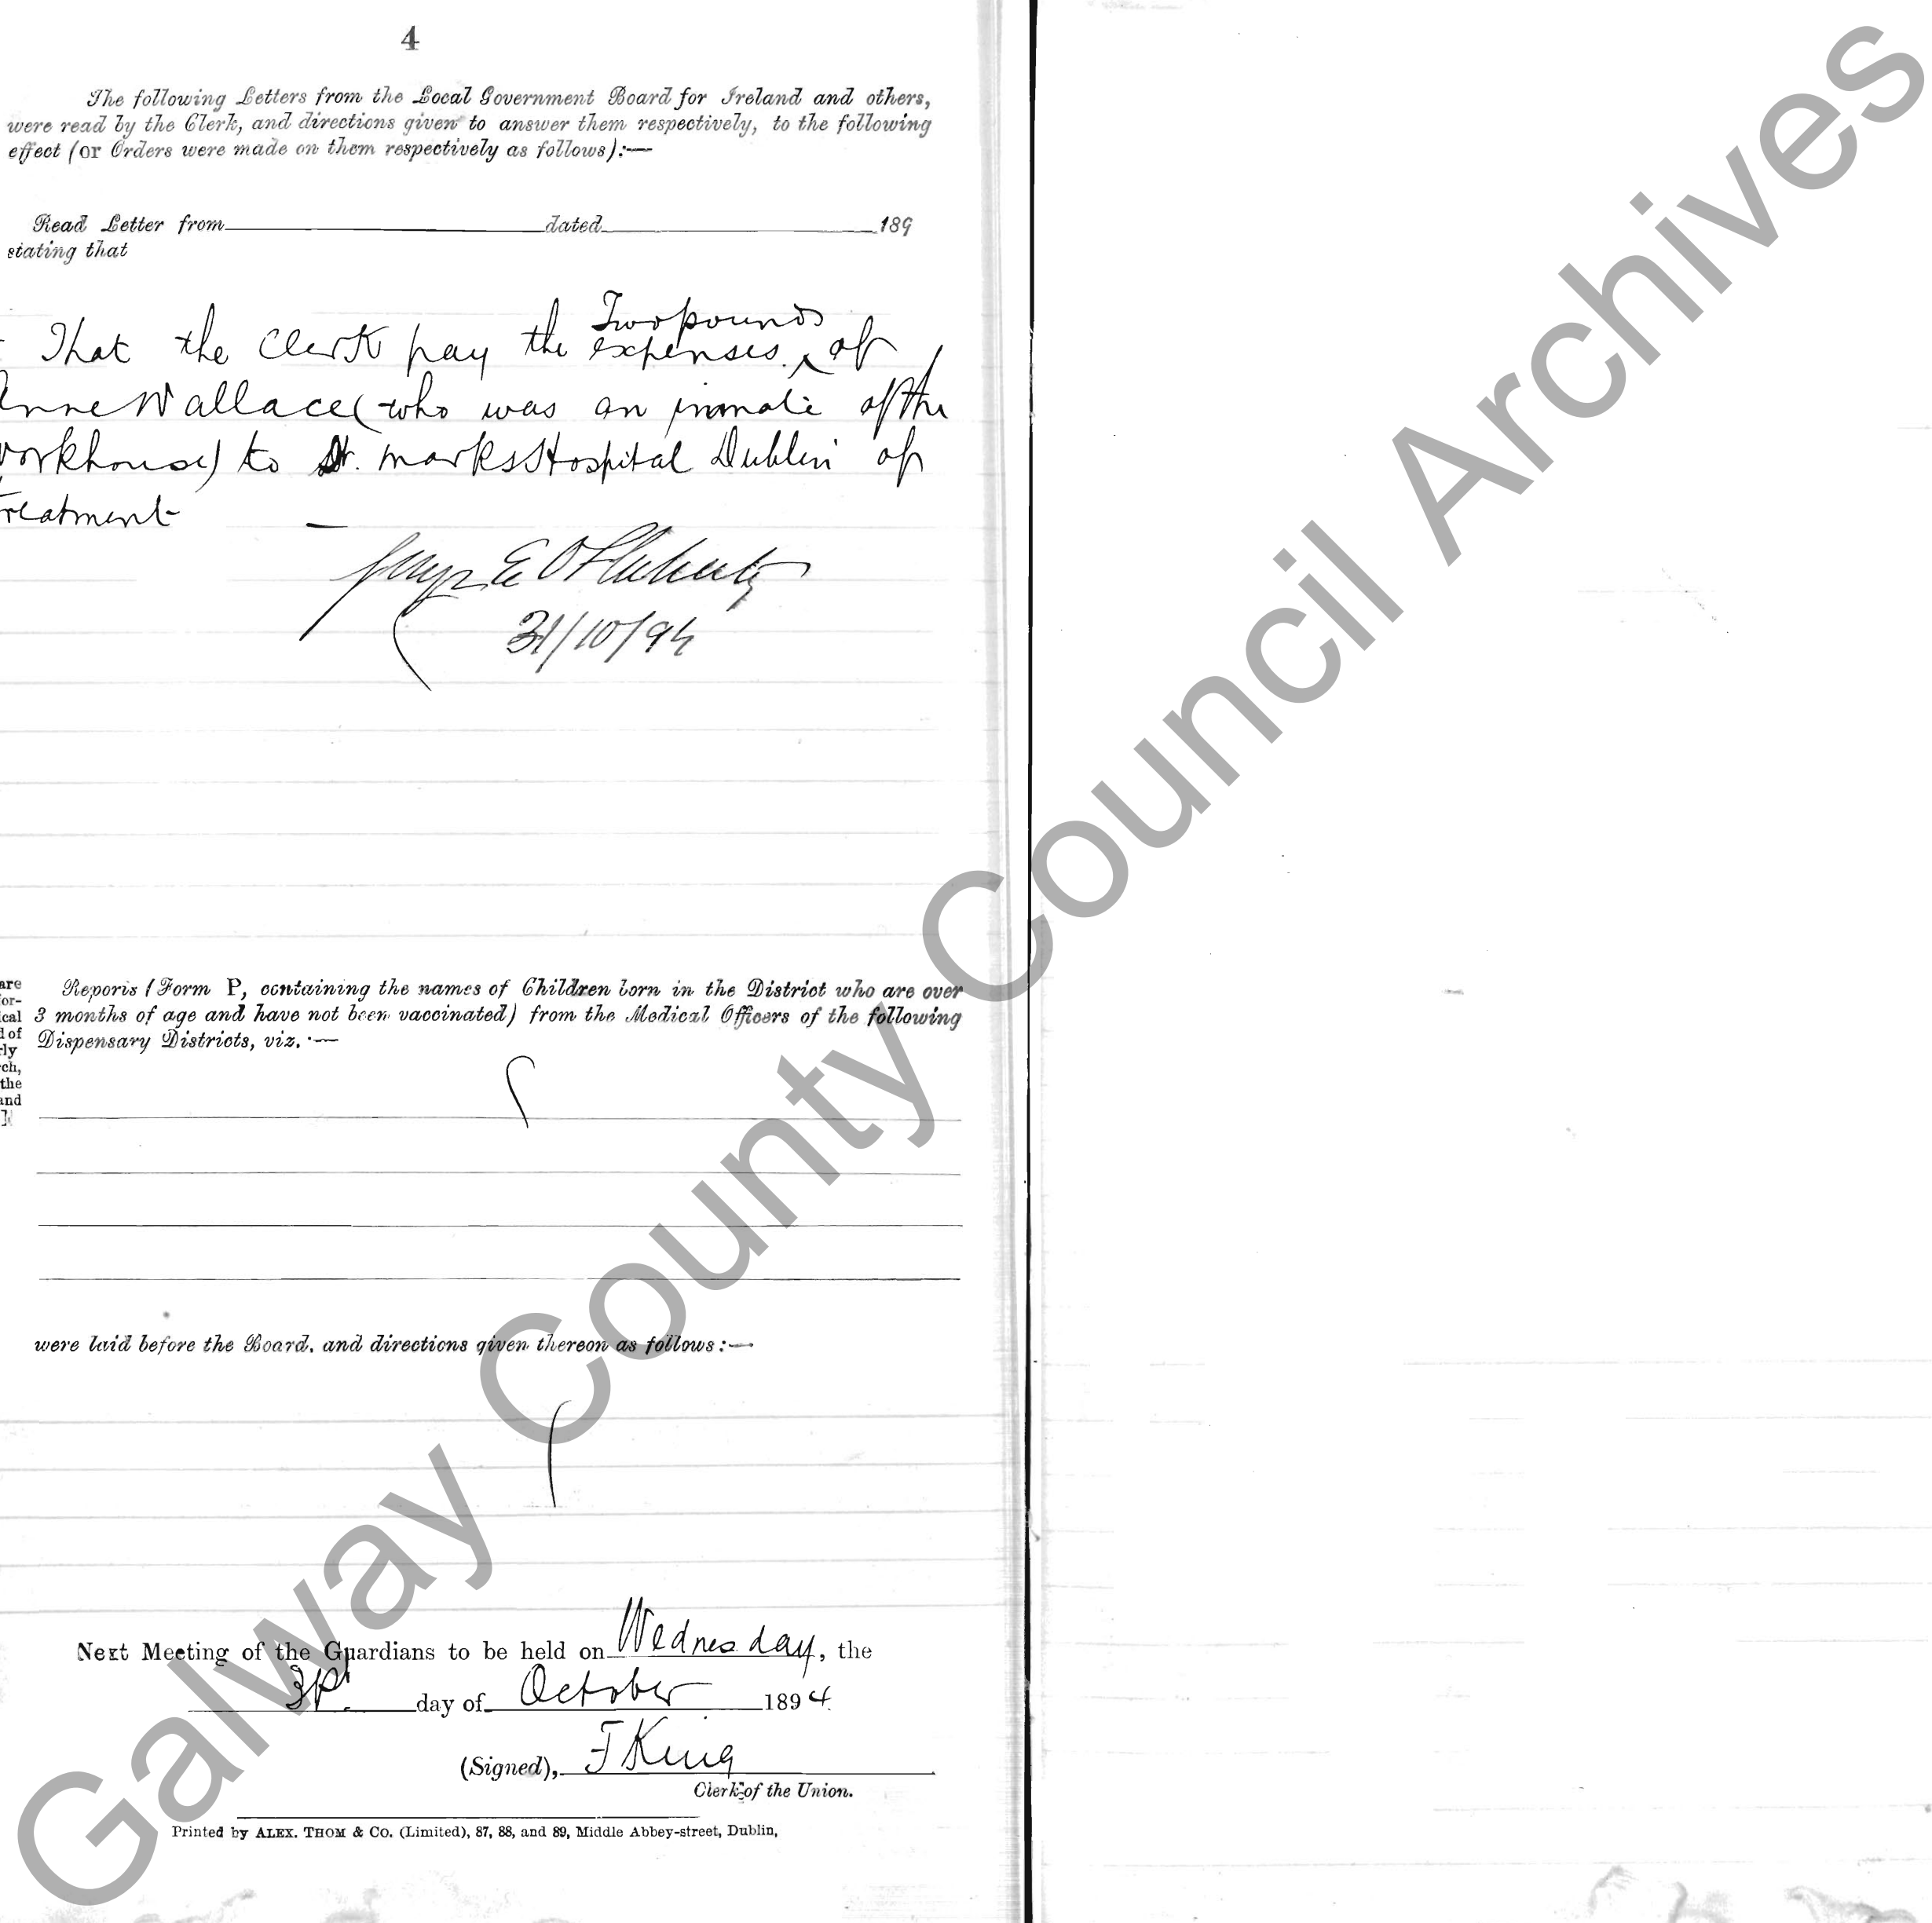 4
The following Letters from the Local Government Board for Ireland and others,
were read by the Clerk, and directions given to answer them respectively, to the following
effect (or Orders were made on them respectively as follows):—
Read Letter from dated 189
stating that
Two pounds
That the Clerk pay the expenses ‸ of
Anne Wallace (who was an inmate of the
workhouse) to St. Marks Hospital Dublin of
treatment —
E O Flaherty
31/10/94
are
for-
ical
l of
rly
ch,
the
and
Reports (Form P, containing the names of Children born in the District who are over
3 months of age and have not been vaccinated) from the Medical Officers of the following
Dispensary Districts, viz. :—
were laid before the Board, and directions given thereon as follows :—
Next Meeting of the Guardians to be held on Wednesday, the
31st day of October 1894
(Signed), T King
Clerk of the Union.
Printed by ALEX. THOM & CO. (Limited), 87, 88, and 89, Middle Abbey-street, Dublin,
Galway County Council Archives